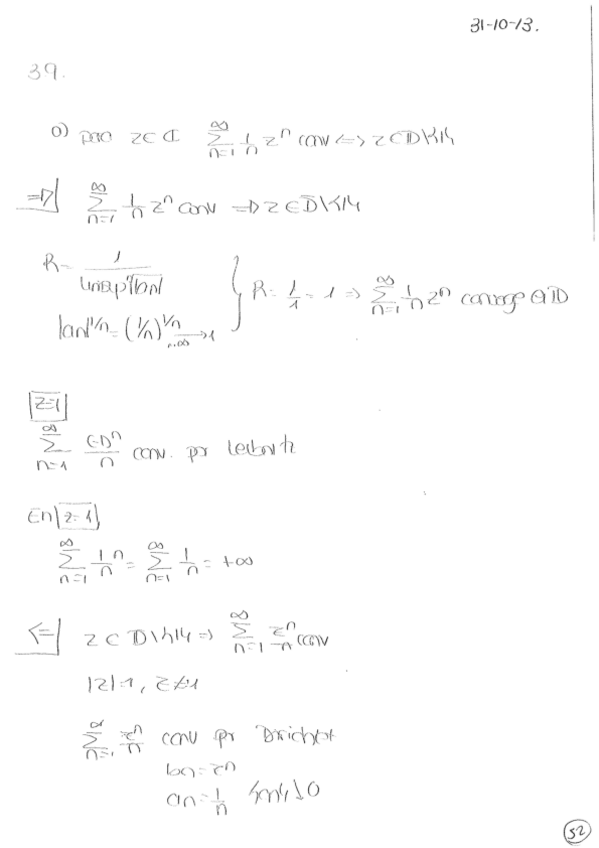 31-10-13.
39.
a) para z∈ℂ ∑_{n=1}^{∞} 1/n z^n conv <=> z∈D̄\{1}
=>| ∑_{n=1}^{∞} 1/n z^n conv => z∈D̄\{1}
R = 1/(lim sup ⁿ√|an|)
|an|^{1/n} = (1/n)^{1/n} →_{n→∞} 1 } R = 1/1 = 1 => ∑_{n=1}^{∞} 1/n z^n converge en D
z=-1
∑_{n=1}^{∞} (-1)^n/n conv. por Leibnitz
En z=1,
∑_{n=1}^{∞} 1/n 1^n = ∑_{n=1}^{∞} 1/n = +∞
<=| z∈D̄\{1} => ∑_{n=1}^{∞} z^n/n conv
|z|=1, z≠1
∑_{n=1}^{∞} z^n/n conv por Dirichlet
bn = z^n
an = 1/n {an}↓0
52